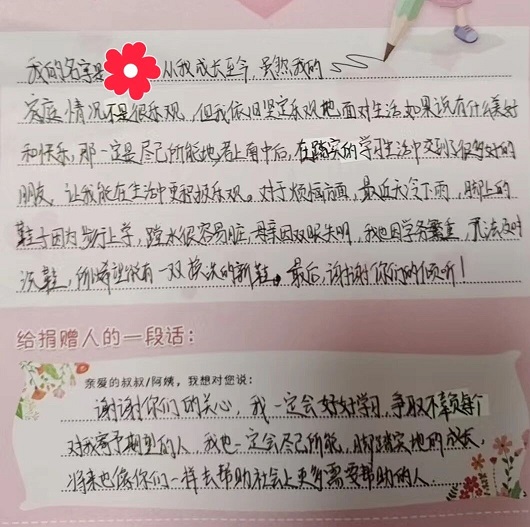 我的名字是 从我成长至今,虽然我的
家庭情况不是很乐观,但我依旧坚定乐观地面对生活如果说有什么美好
和快乐,那一定是尽己所能地考上南中后,在踏实的学习生活中交到了很多好的
朋友,让我能在生活中更积极乐观。对于烦恼方面,最近天冷下雨,脚上的
鞋子因为步行上学,踏水很容易脏,母亲因双眼失明,我也因学务繁重,无法及时
洗鞋,所以希望能有一双换次的新鞋。最后,谢谢你们的倾听!
给捐赠人的一段话:
亲爱的叔叔/阿姨,我想对您说:
谢谢你们的关心,我一定会好好学习,争取不辜负每个
对我寄予期望的人 我也一定会尽己所能,脚踏实地的成长,
将来也像你们一样去帮助社会上更多需要帮助的人.